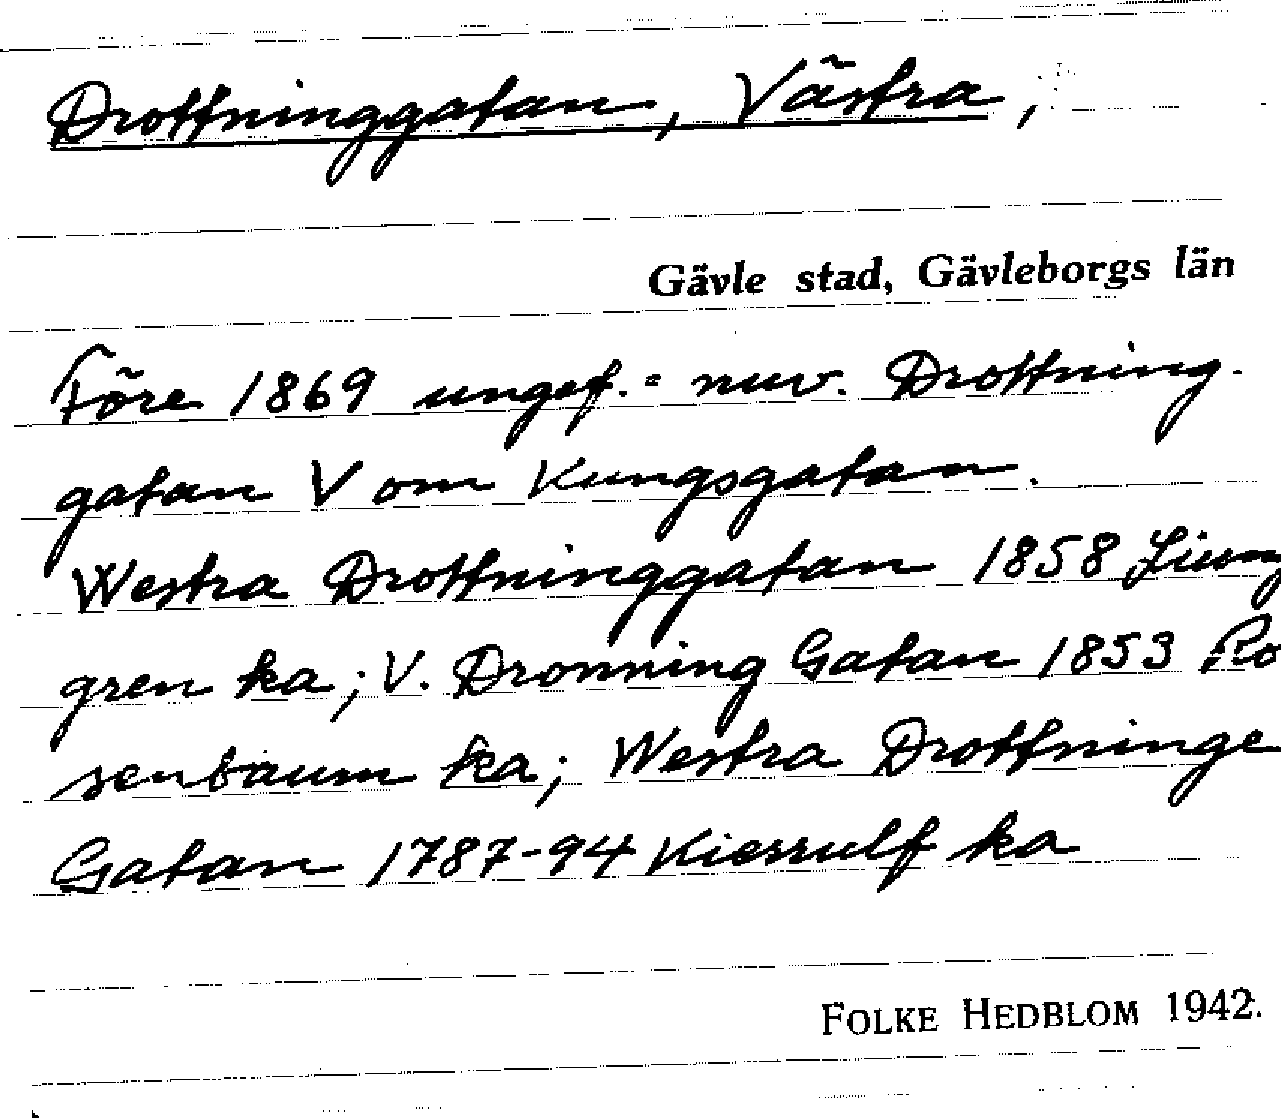 Drottninggatan, Västra,
Gävle stad, Gävleborgs län
Före 1869 ungef. = nuv. Drottning-
gatan V om Kungsgatan.
Westra Drottninggatan 1858 Liung
gren ka; V. Dronning Gatan 1853 Ro
senbaum ka; Westra Drottninge
Gatan 1787-94 Kierrulf ka
FOLKE HEDBLOM 1942.